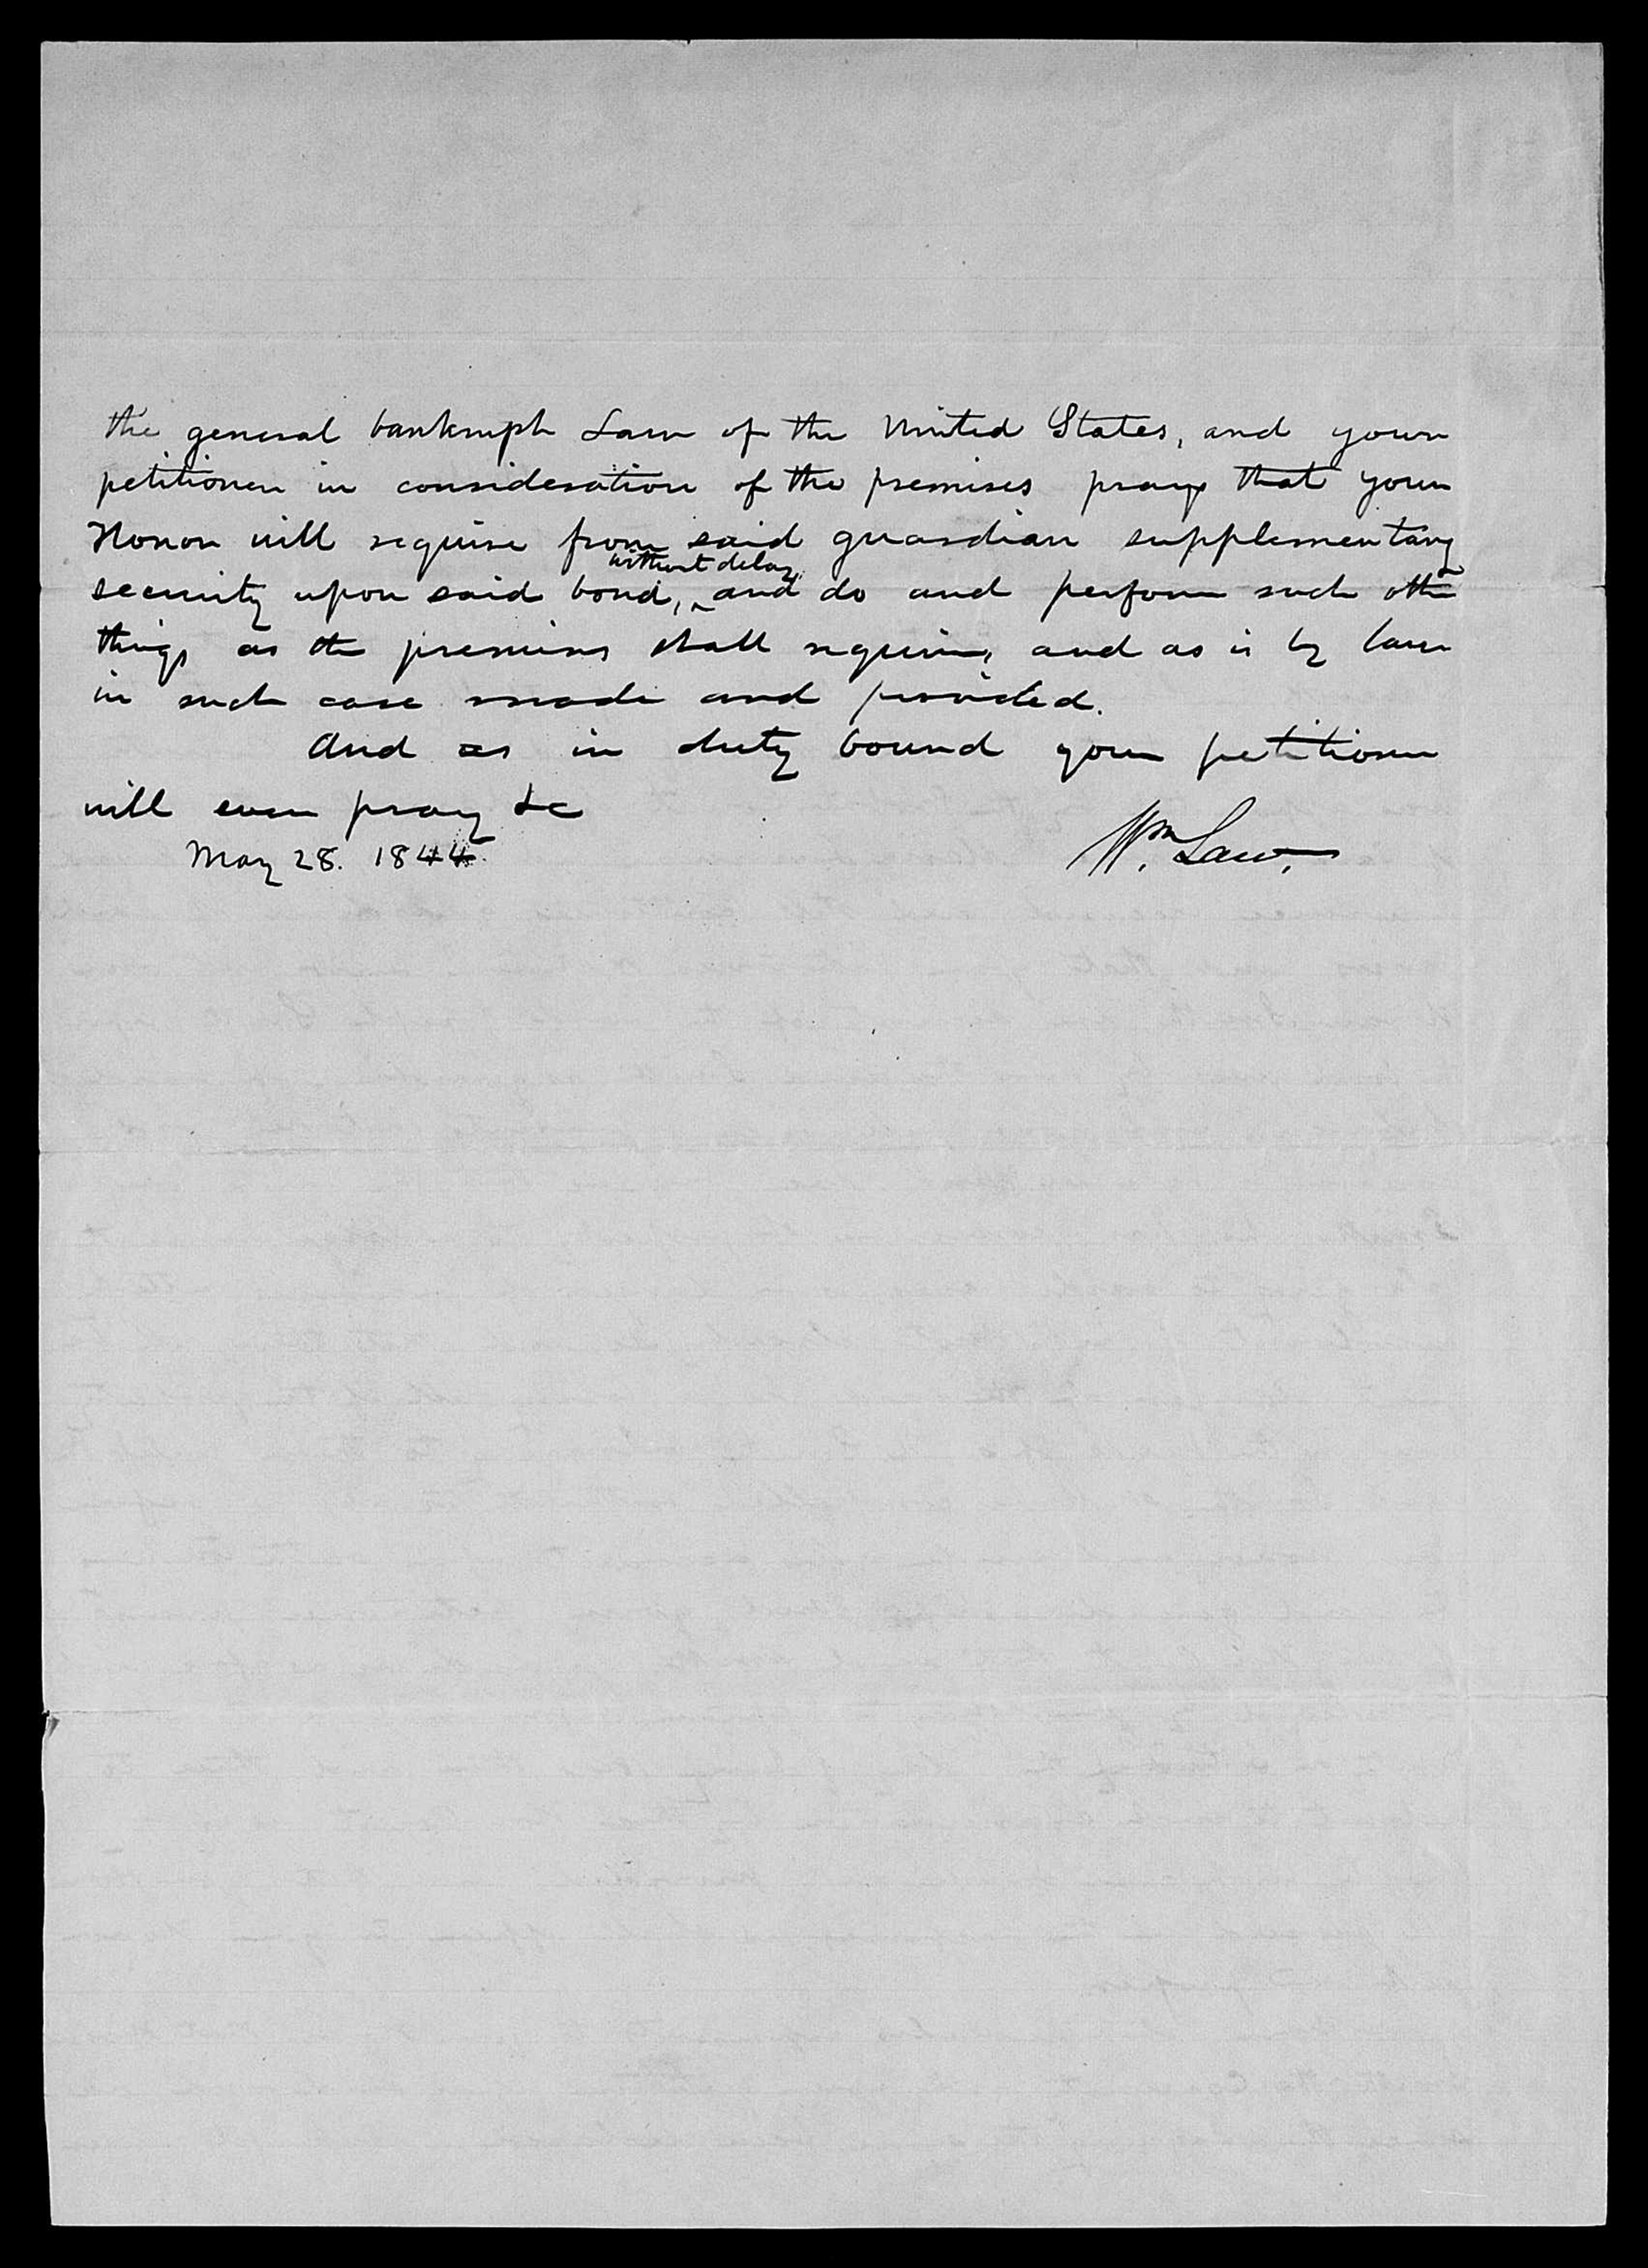 the general bankrupt Law of the United States, and your
petitioner in consideration of the premises prays that your
Honor will require from said guardian supplementary
without delay
security upon said bond, ^ and do and perform such other
things as the premises shall require, and as is by law
in such case made and provided.
And as in duty bound your petitioner
will ever pray &c
May 28. 1844.
Wm. Law.